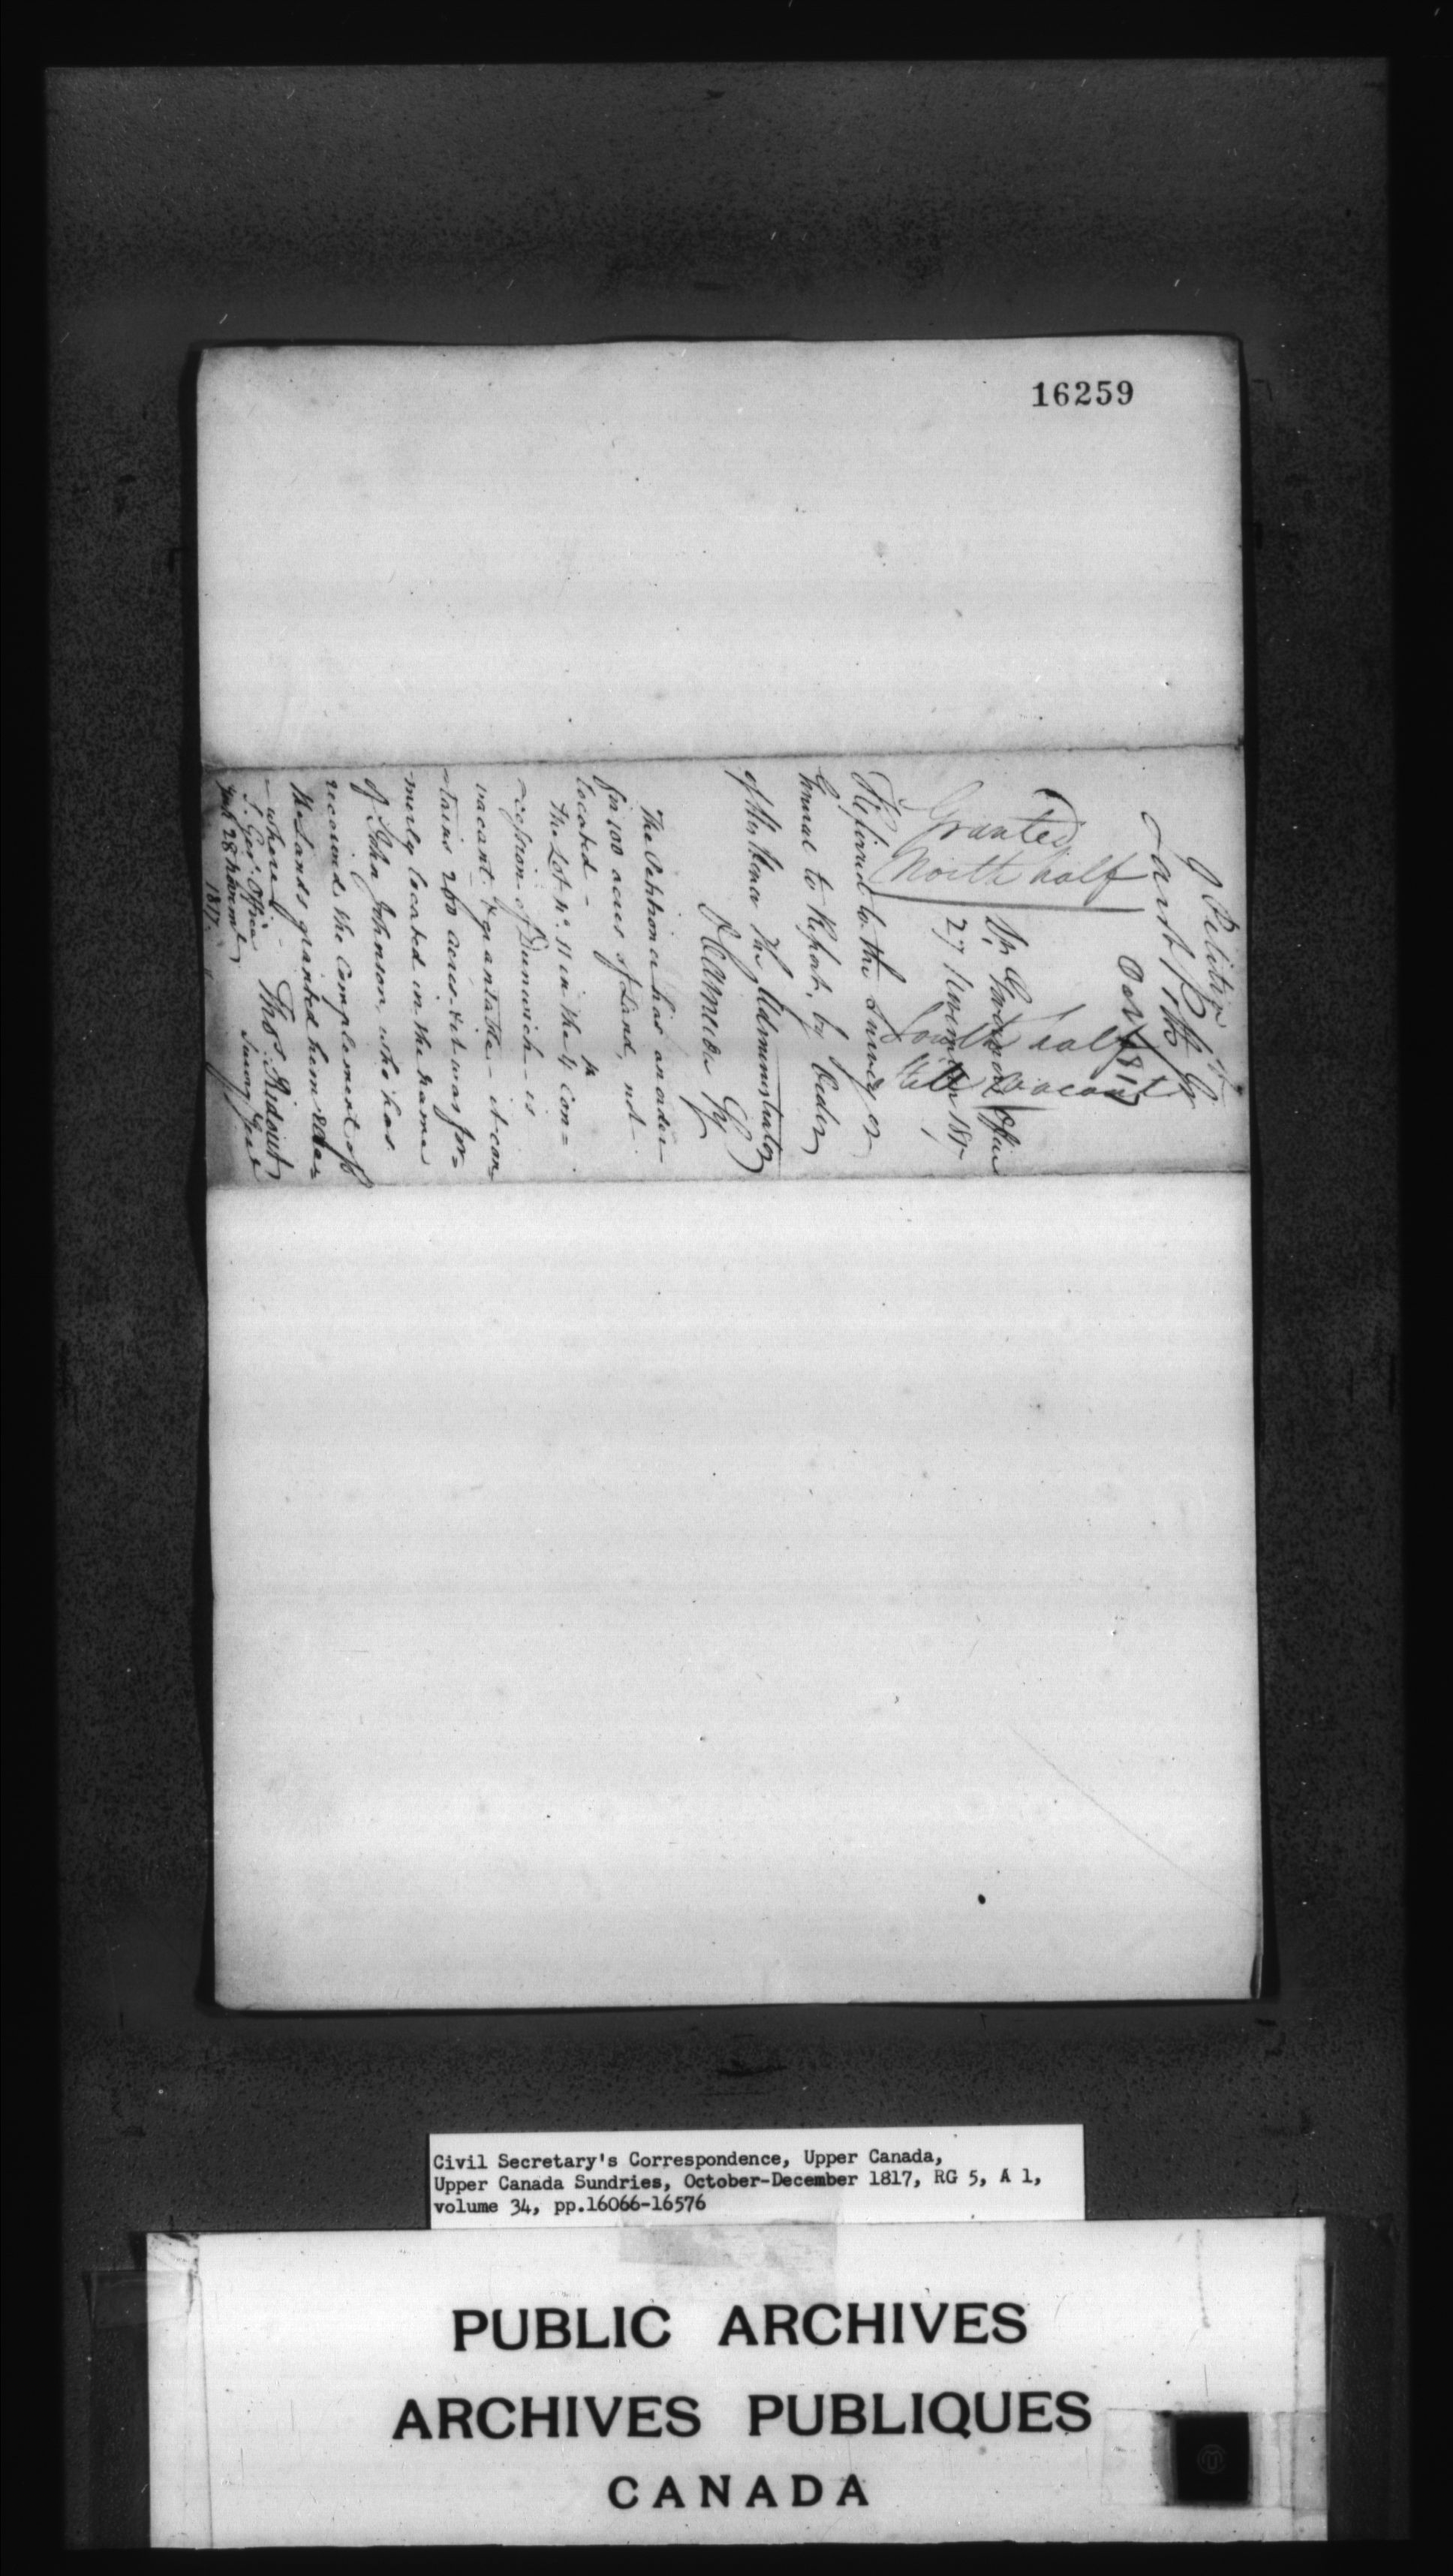 16259
Petition
Oct 1817
Granted
North half
South half
still vacant
Lt Governor's Office
27 November 1817
Referred to the Surveyor
General to Report, by Order
of His Honor the Administrator
D Cameron
The Petitioner has an order
for 100 acres of Land, not
located -
The Lot No. 11 in the 4th Con=
=cession of Dunwich - is
vacant & grantable - it con=
=tains 200 acres & it was for=
=merly located in the name
of John Johnson, who has
received the Complement of
the Lands granted him else=
=where -
S. Genl. Office
28 Novemr.
1817.
Thos. Ridout
Survey Genl
Civil Secretary's Correspondence, Upper Canada,
Upper Canada Sundries, October-December 1817, RG 5, A 1,
volume 34, pp.16066-16576
PUBLIC ARCHIVES
ARCHIVES PUBLIQUES
CANADA